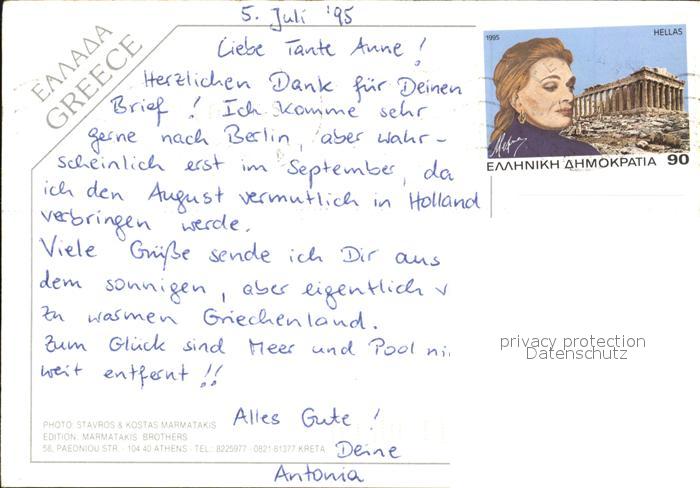 5. Juli '95
Liebe Tante Anne !
Herzlichen Dank für Deinen
Brief ! Ich komme sehr
gerne nach Berlin, aber wahr-
scheinlich erst im September, da
ich den August vermutlich in Holland
verbringen werde.
Viele Grüße sende ich Dir aus
dem sonnigen, aber eigentlich v
zu warmen Griechenland.
Zum Glück sind Meer und Pool ni
weit entfernt !!
Alles Gute !
Deine
Antonia
ΕΛΛΑΔΑ
GREECE
PHOTO: STAVROS & KOSTAS MARMATAKIS
EDITION: MARMATAKIS BROTHERS
58, PAEONIOU STR. · 104 40 ATHENS · TEL.: 8225977 · 0821-81377 KRETA
1995
HELLAS
ΕΛΛΗΝΙΚΗ ΔΗΜΟΚΡΑΤΙΑ 90
privacy protection
Datenschutz